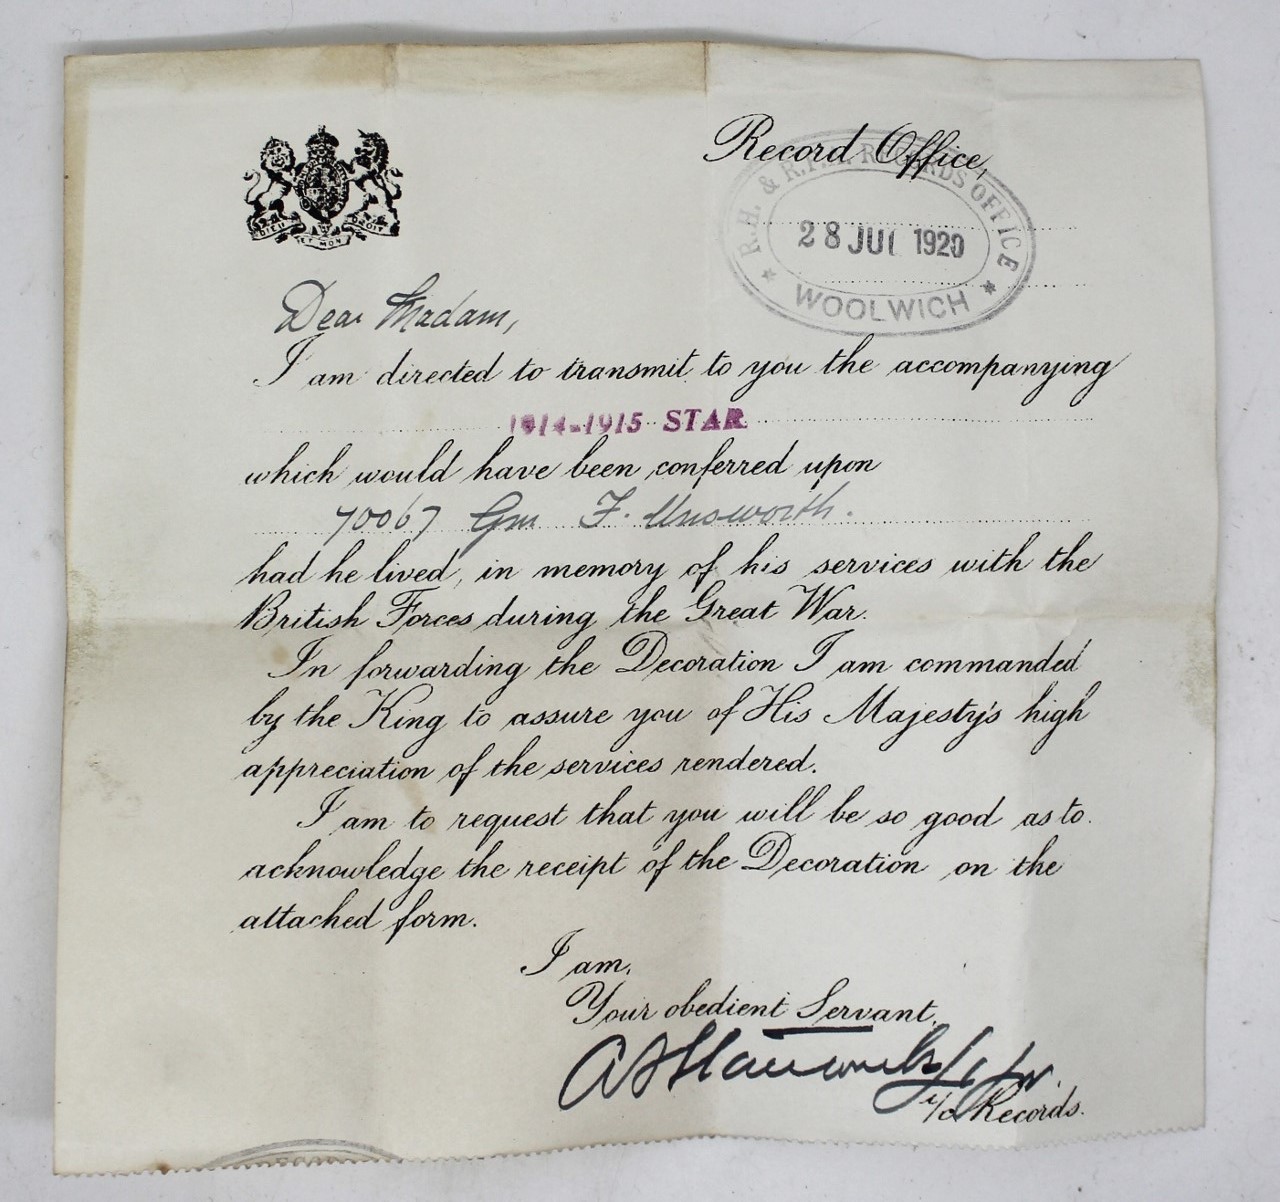 Record Office,
R.H. & R.F.A. RECORDS OFFICE
28 JUL 1920
WOOLWICH
DIEU ET MON DROIT
Dear Madam,
I am directed to transmit to you the accompanying
1914-1915 STAR
which would have been conferred upon
70067 Gnr F. Unsworth.
had he lived, in memory of his services with the
British Forces during the Great War.
In forwarding the Decoration I am commanded
by the King to assure you of His Majesty's high
appreciation of the services rendered.
I am to request that you will be so good as to
acknowledge the receipt of the Decoration on the
attached form.
I am,
Your obedient Servant,
i/c Records.